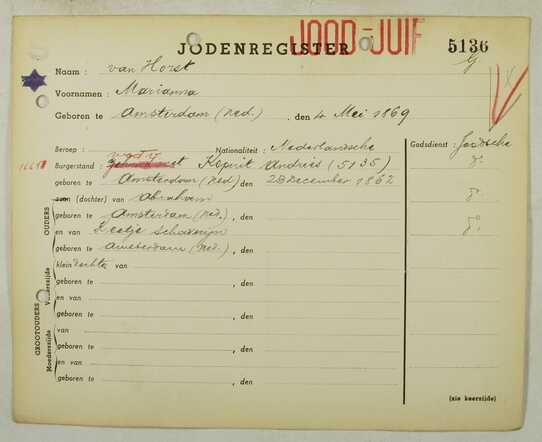 JOOD-JUIF
JODENREGISTER 5136
Naam : van Horst
Voornamen : Marianna
Geboren te Amsterdam (Ned.) , den 4 Mei 1869
Beroep : Nationaliteit : Nederlandsche Godsdienst : Joodsche
Burgerstand : Kopuit Andries (5135) d°
geboren te Amsterdam (Ned) den 28 December 1862
zoon (dochter) van Abraham d°
geboren te Amsterdam (Ned.) , den
en van Schaverijn d°
geboren te Amsterdam (Ned.) , den
klein dochter van
geboren te , den
en van
geboren te , den
van
geboren te , den
en van
geboren te , den
OUDERS
GROOTOUDERS
Vaderszijde
Moederszijde
(zie keerzijde)